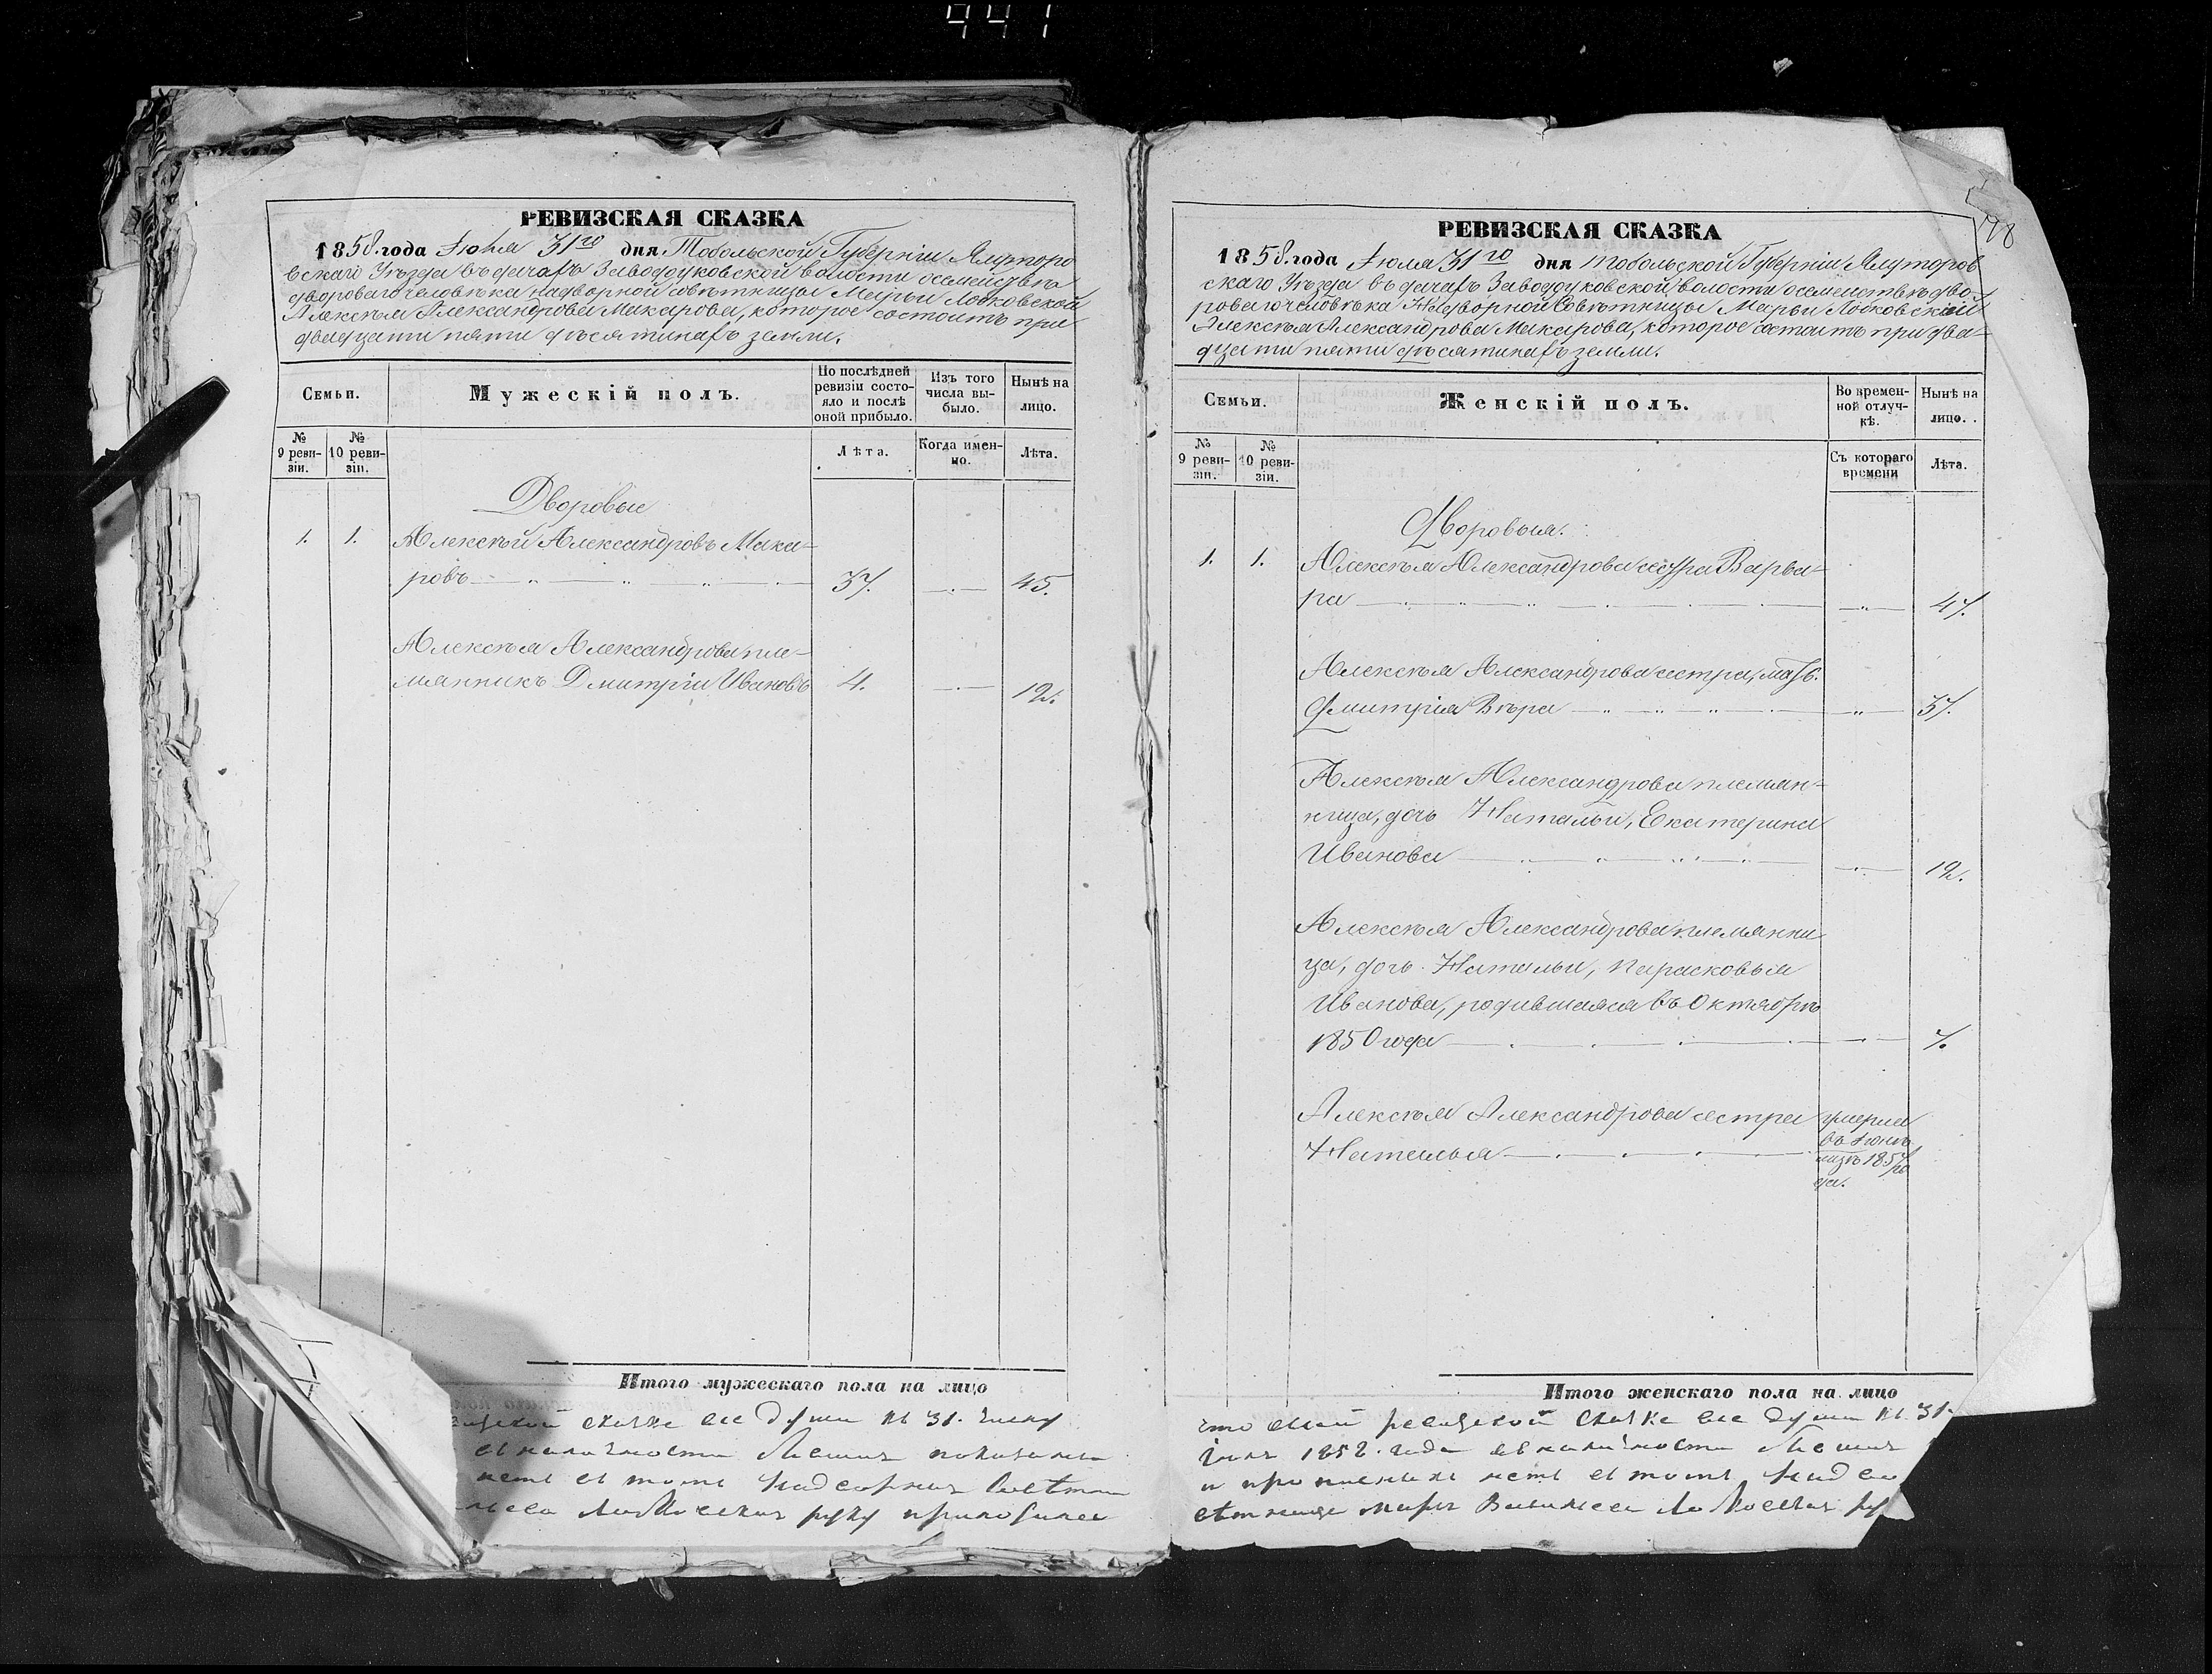 441
РЕВИЗСКАЯ СКАЗКА
1858. года Іюля 31го дня Тобольской Губерніи Ялуторо
вскаго Уѣзда въ дачахъ Заводоуковской волости о семействѣ
двороваго человѣка надворной совѣтницы Марьи Лобковской
Алексѣя Александрова Макарова, которое состоитъ при
двадцати пяти десятинахъ земли.
Семьи.
Мужескій полъ.
По послѣдней
ревизіи состо-
яло и послѣ
оной прибыло.
Изъ того
числа вы-
было.
Нынѣ на
лицо.
№
9 реви-
зіи.
№
10 реви-
зіи.
Лѣта.
Когда имен-
но.
Лѣта.
Дворовые
1. 1. Алексѣй Александровъ Мака-
ровъ 37. 45.
Алексѣя Александрова пле-
мянникъ Дмитрій Ивановъ 4. 12.
Итого мужескаго пола на лицо
сказке все души къ 31. числу
въ наличности
нетъ въ томъ надворная советни
руку приложила
178
РЕВИЗСКАЯ СКАЗКА
1858. года Іюля 31го дня Тобольской Губерніи Ялуторов
скаго Уѣзда въ дачахъ Заводоуковской волости о семействѣ дво-
роваго человѣка Надворной Совѣтницы Марьи Лобковской
Алексѣя Александрова Макарова, которое состоитъ при два-
дцати пяти десятинахъ земли.
Семьи.
Женскій полъ.
Во времен-
ной отлуч-
кѣ.
Нынѣ на
лицо.
№
9 реви-
зіи.
№
10 реви-
зіи.
Съ котораго
времени
Лѣта.
Дворовыя.
1. 1. Алексѣя Александрова сестра Варва-
ра 47.
Алексѣя Александрова сестра, мать
Дмитрія Вѣра 37.
Алексѣя Александрова племян-
ница, дочь Натальи, Екатерина
Иванова 12.
Алексѣя Александрова племянни
ца, дочь Натальи, Парасковья
Иванова, родившаяся въ Октябрѣ
1850 года 7.
Алексѣя Александрова сестра умерла
Наталья въ Іюнѣ
1857 го
да.
Итого женскаго пола на лицо
что сей ревизской сказке все души къ 31.
1858. года въ наличности
и нетъ въ томъ надво
руку